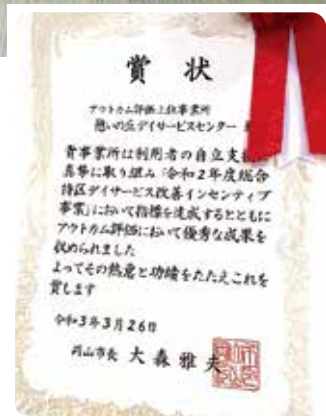 賞状
アウトカム評価上位事業所
憩いの丘デイサービスセンター
貴事業所は利用者の自立支援に
真摯に取り組み「令和2年度総合
特区デイサービス改善インセンティブ
事業」において指標を達成するとともに
アウトカム評価において優秀な成果を
収められました
よってその熱意と功績をたたえこれを
賞します
令和3年3月26日
岡山市長 大森雅夫